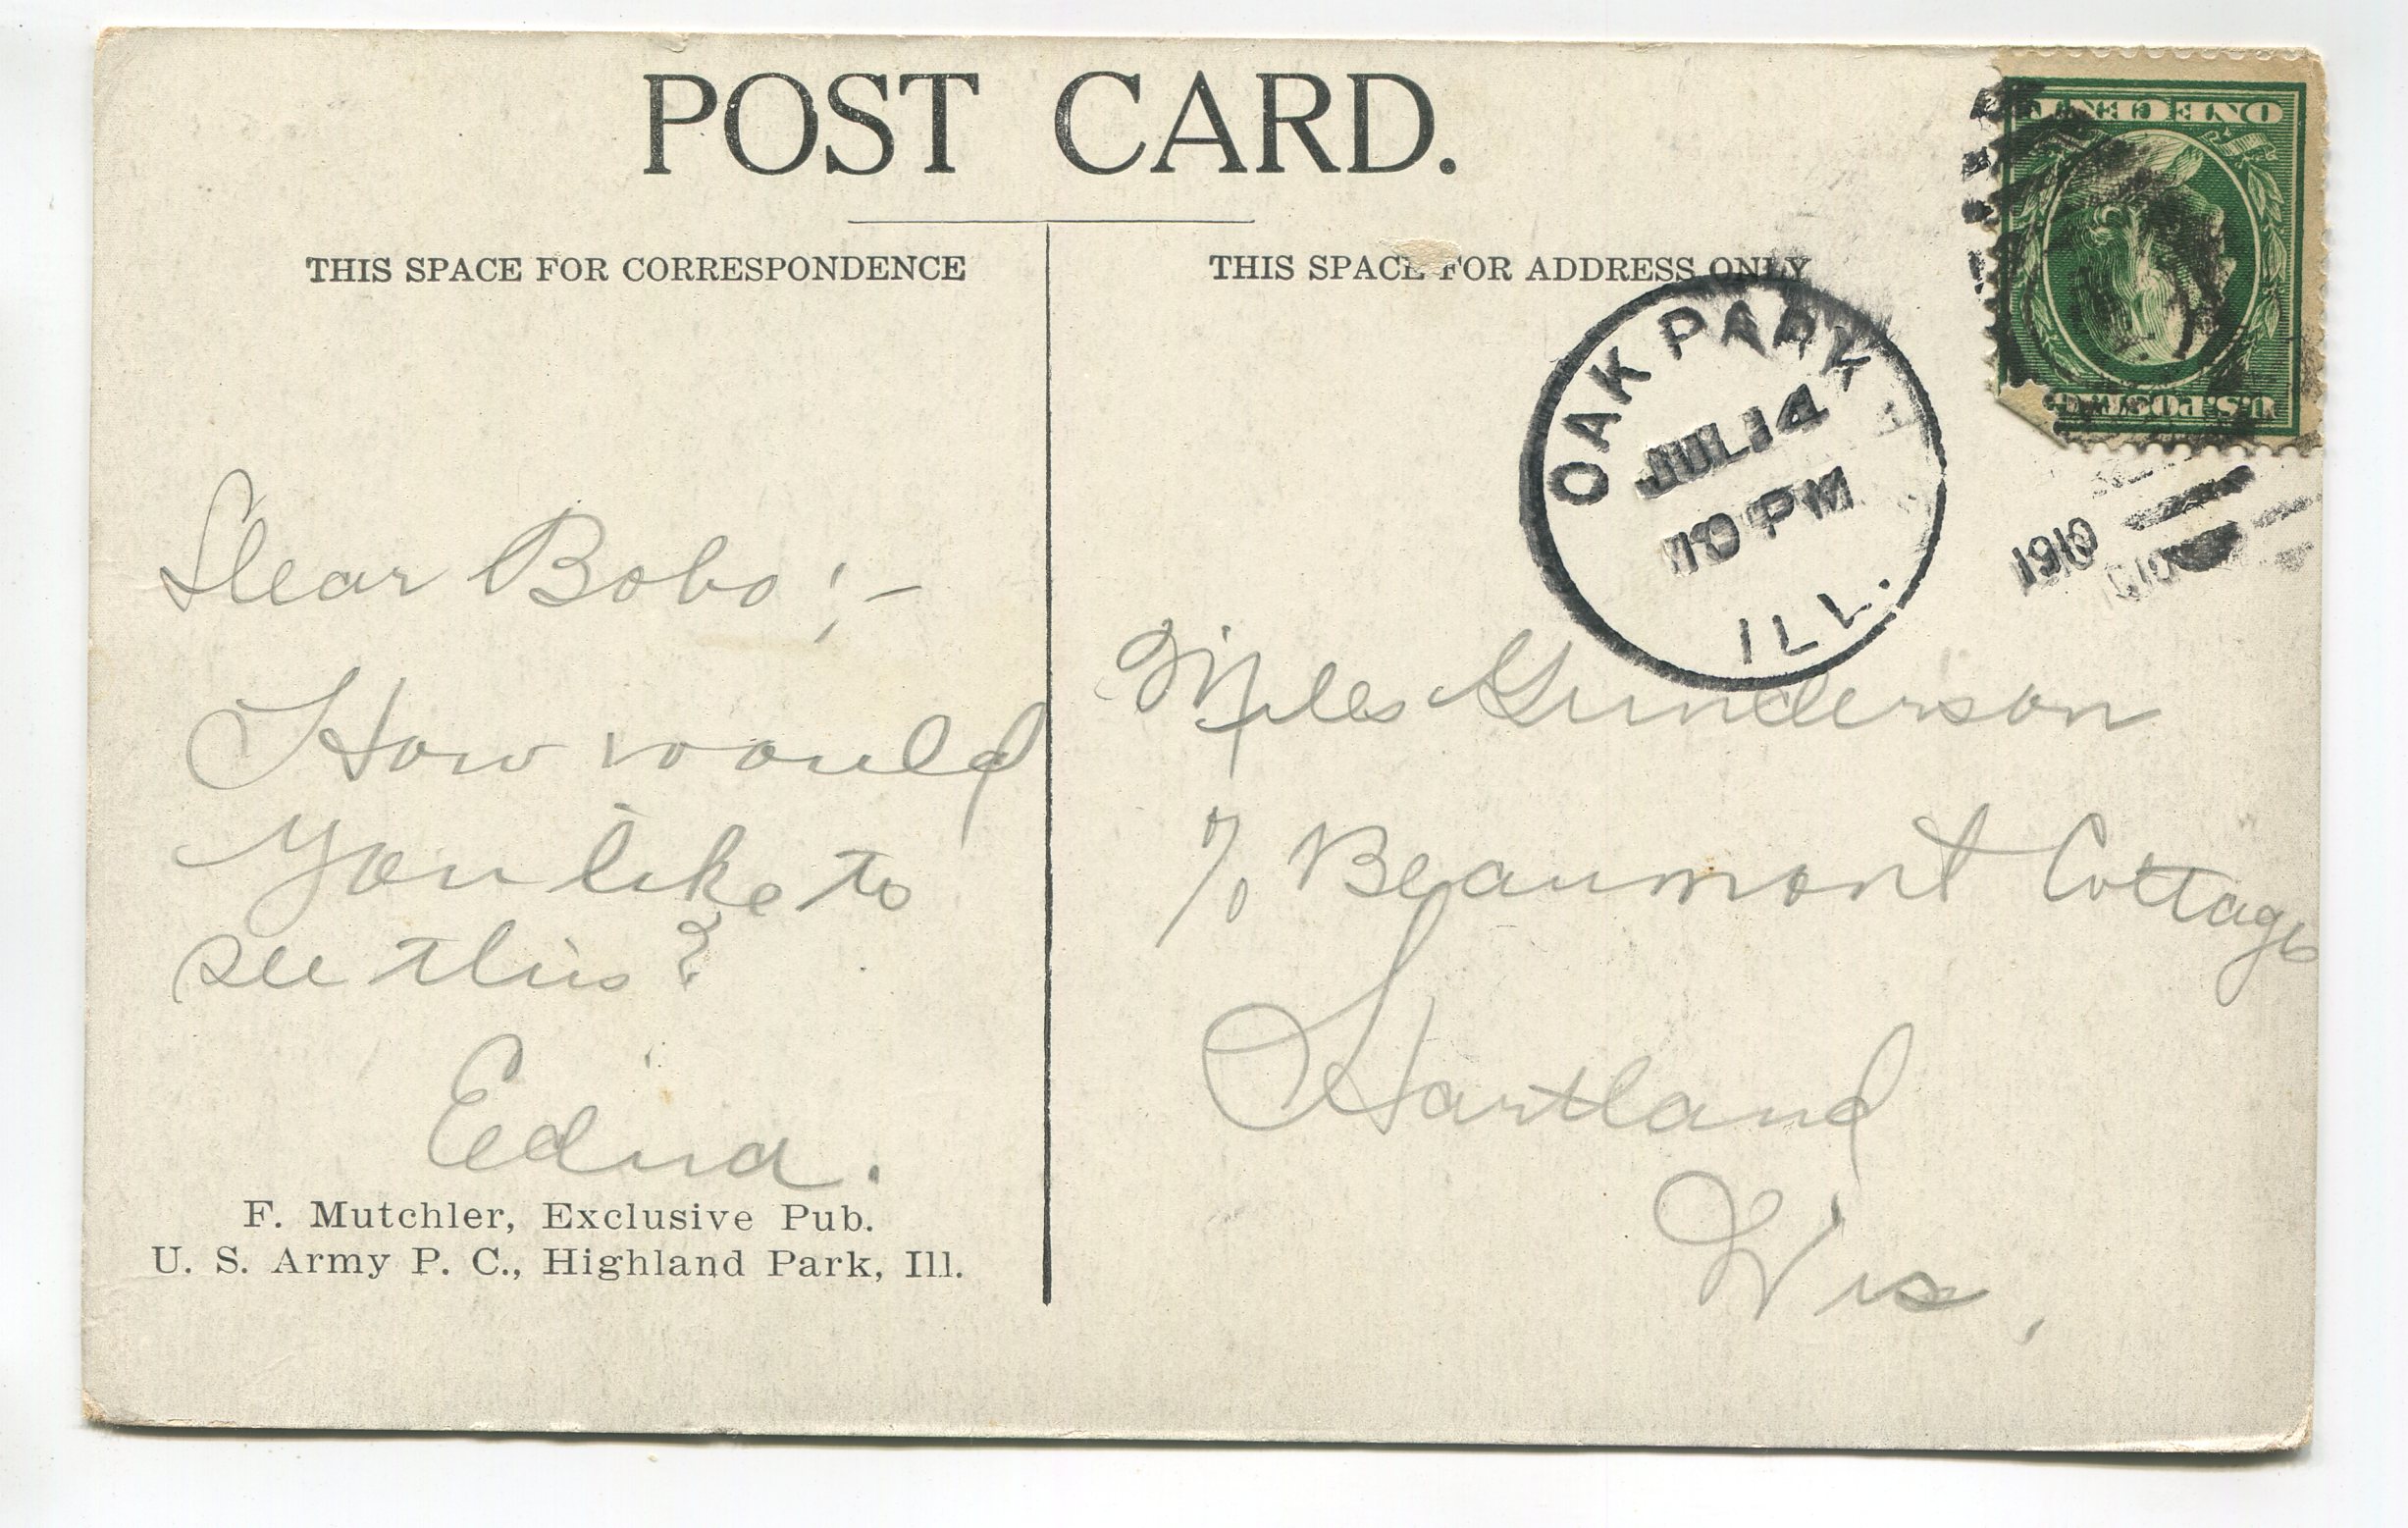 POST CARD.
THIS SPACE FOR CORRESPONDENCE
THIS SPACE FOR ADDRESS ONLY
ONE CENT
U.S. POSTAGE
OAK PARK
JUL 14
10 PM
ILL.
1910
Dear Bobo ;-
How would
you like to
see this?
Edna.
F. Mutchler, Exclusive Pub.
U. S. Army P. C., Highland Park, Ill.
Gunderson
% Beaumont Cottage
Hartland
Wis,